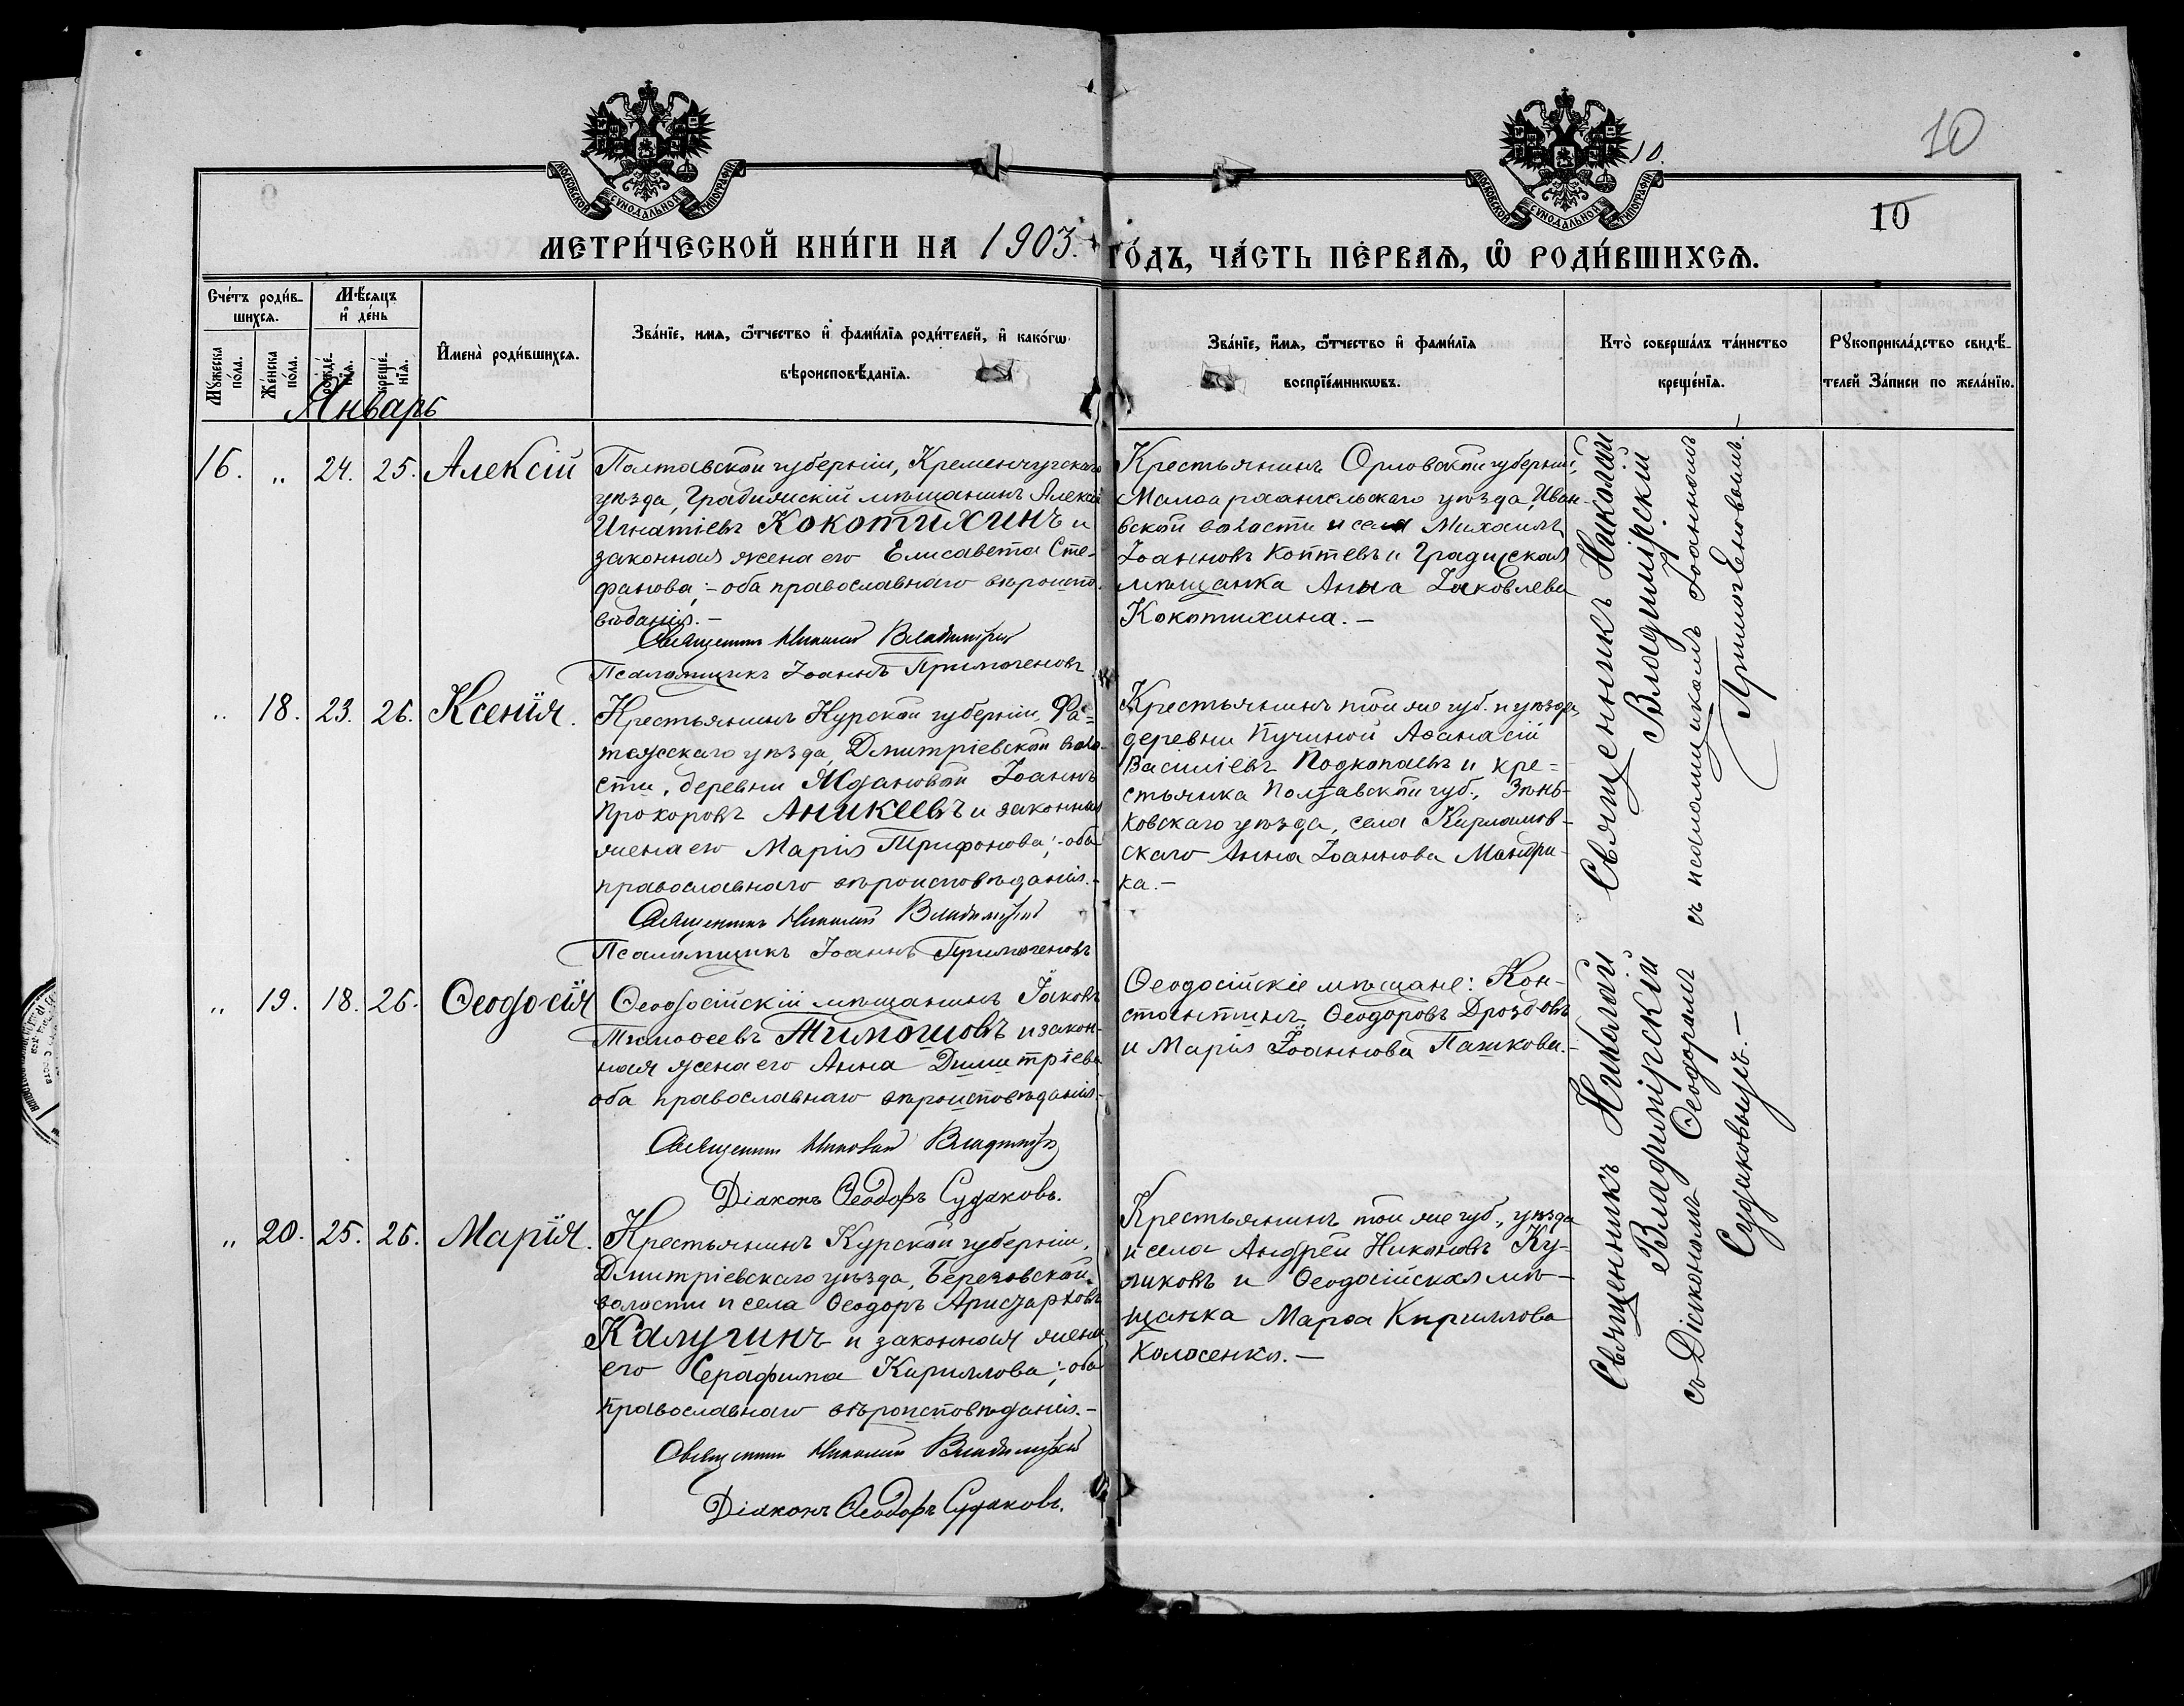 МОСКОВСКОЙ СѴНОДАЛЬНОЙ ТИПОГРАФІИ
МОСКОВСКОЙ СѴНОДАЛЬНОЙ ТИПОГРАФІИ
10.
10
10
МЕТРИ́ЧЕСКОЙ КНИ́ГИ НА 1903. ГО́ДЪ, ЧА́СТЬ ПЕ́РВАѦ, Ѽ РОДИ́ВШИХСѦ.
Сче́тъ роди́в-
шихсѧ.
Мꙋжеска по́ла.
Же́нска по́ла.
Мѣ́сяцъ
и҆ де́нь
рожде́-
нїѧ.
креще́-
нїѧ.
И҆мена̀ роди́вшихсѧ.
Зва́нїе, имѧ, ѻ҆́тчество и҆ фами́лїѧ роди́телей, и҆ како́гѡ
вѣроисповѣ́данїѧ.
Зва́нїе, и҆́мѧ, ѻ҆́тчество и҆ фами́лїѧ
воспрїе́мникѡвъ.
Кто̀ соверша́лъ та́инство
креще́нїѧ.
Рꙋкоприкла́дство свидѣ́-
телей За́писи по жела́нїю.
Январь
16. „ 24. 25. Алексій
Полтавской губерніи, Кременчугскаго
уѣзда, Градижскій мѣщанинъ Алексій
Игнатіевъ Кокотихинъ и
законная жена его Елисавета Сте-
фанова; - оба православнаго вѣроиспо-
вѣданія. -
Священникъ Николай Владимірскій
Псаломщикъ Іоаннъ Примоченовъ
Крестьянинъ Орловской губерніи,
Малоархангельскаго уѣзда, Иван-
вской волости и села Михаилъ
Іоанновъ Коптевъ и Градижская
мѣщанка Анна Іаковлева
Кокотихина. -
Священникъ Николай
Владимірскій
съ псаломщикомъ Іоанномъ
Примоченовымъ. -
„ 18. 23. 26. Ксенія.
Крестьянинъ Курской губерніи, Фа-
тежсскаго уѣзда, Дмитріевской воло-
сти, деревни Ждановой Іоаннъ
Прохоровъ Аникеевъ и законная
жена его Марія Трифонова; - оба
православнаго вѣроисповѣданія. -
Священникъ Николай Владимірскій
Псаломщикъ Іоаннъ Примоченовъ
Крестьянинъ той же губ. и уѣзда,
деревни Пучиной Аѳанасій
Василіевъ Подкопаевъ и кре-
стьянка Полтавской губ., Зѣнь-
ковскаго уѣзда, села
скаго Анна Іоаннова Мандри-
ка. -
„ 19. 18. 26. Ѳеодосія
Ѳеодосійскій мѣщанинъ Іаковъ
Тимоѳеевъ Тимошовъ и закон-
ная жена его Анна Димитріева
оба православнаго вѣроисповѣданія. -
Священникъ Николай Владимірскій
Діаконъ Ѳеодоръ Судаковъ.
Ѳеодосійскіе мѣщане: Кон-
стантинъ Ѳеодоровъ Дроздовъ
и Марія Іоаннова Пашкова. -
Священникъ Николай
Владимірскій
съ Діакономъ Ѳеодоромъ
Судаковымъ. -
„ 20. 25. 26. Марія.
Крестьянинъ Курской губерніи,
Дмитріевскаго уѣзда, Березовской
волости и села Ѳеодоръ Аристарховъ
Калугинъ и законная жена
его Серафима Кириллова; - оба
православнаго вѣроисповѣданія. -
Священникъ Николай Владимірскій
Діаконъ Ѳеодоръ Судаковъ.
Крестьянинъ той же губ., уѣзда
и села Андрей Никоновъ Ку-
ликовъ и Ѳеодосійская мѣ-
щанка Марѳа Кириллова
Колосенко. -